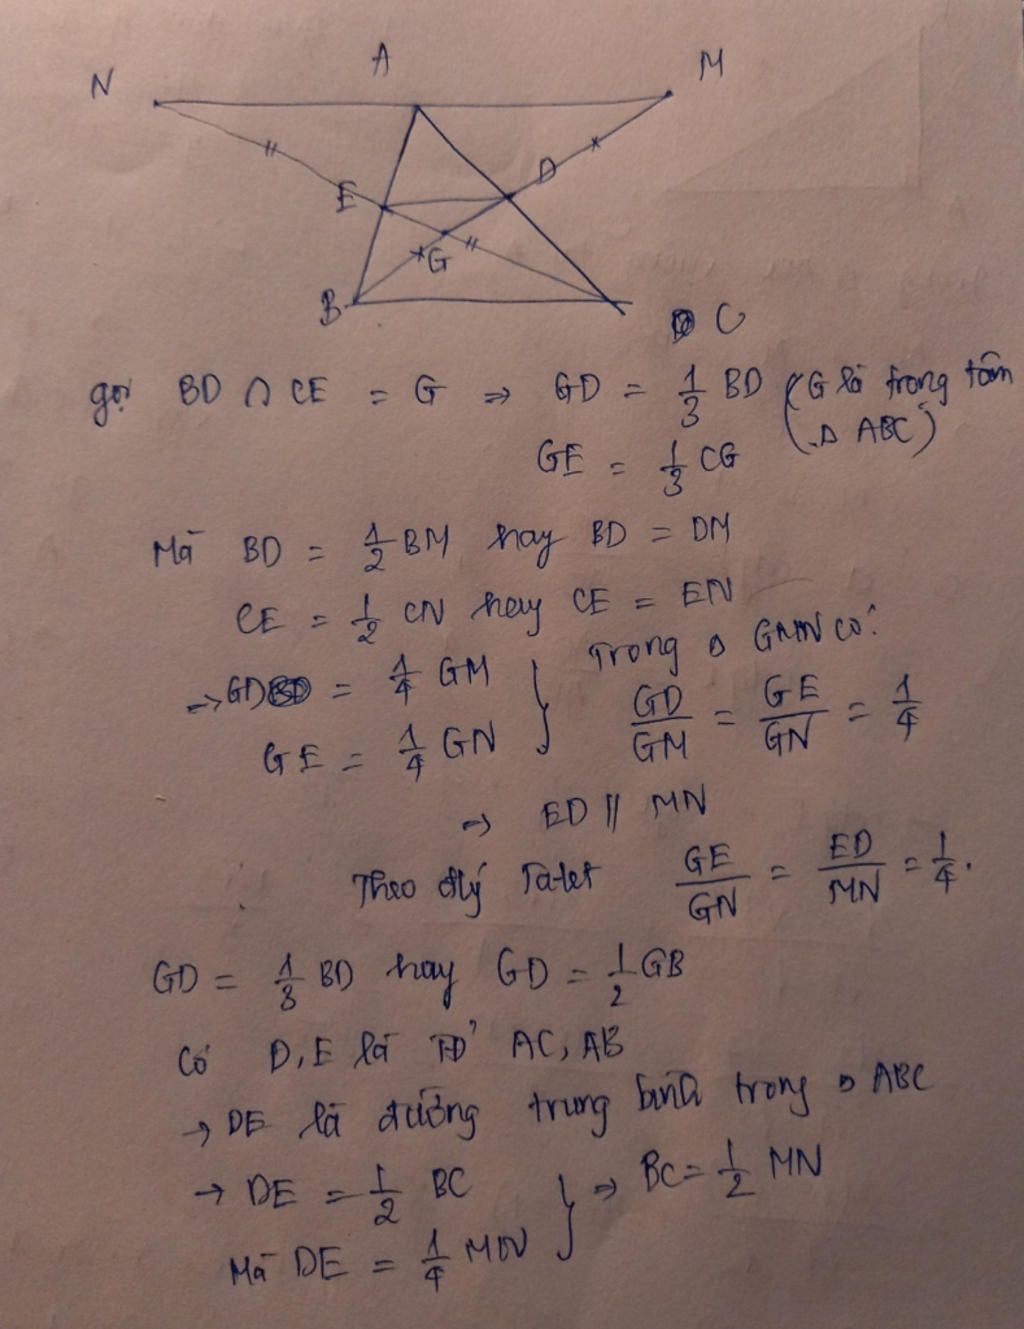 N A M
E D
G
B C
gọi BD ∩ CE = G ⇒ GD = 1/3 BD (G là trọng tâm
GE = 1/3 CG Δ ABC)
Mà BD = 1/2 BM hay BD = DM
CE = 1/2 CN hay CE = EN
→ GD = 1/4 GM } Trong Δ GMN có:
GE = 1/4 GN GD/GM = GE/GN = 1/4
⇒ ED // MN
Theo đlý Talet GE/GN = ED/MN = 1/4.
GD = 1/3 BD hay GD = 1/2 GB
Có D, E là TĐ AC, AB
→ DE là đường trung bình trong Δ ABC
→ DE = 1/2 BC } ⇒ BC = 1/2 MN
Mà DE = 1/4 MN